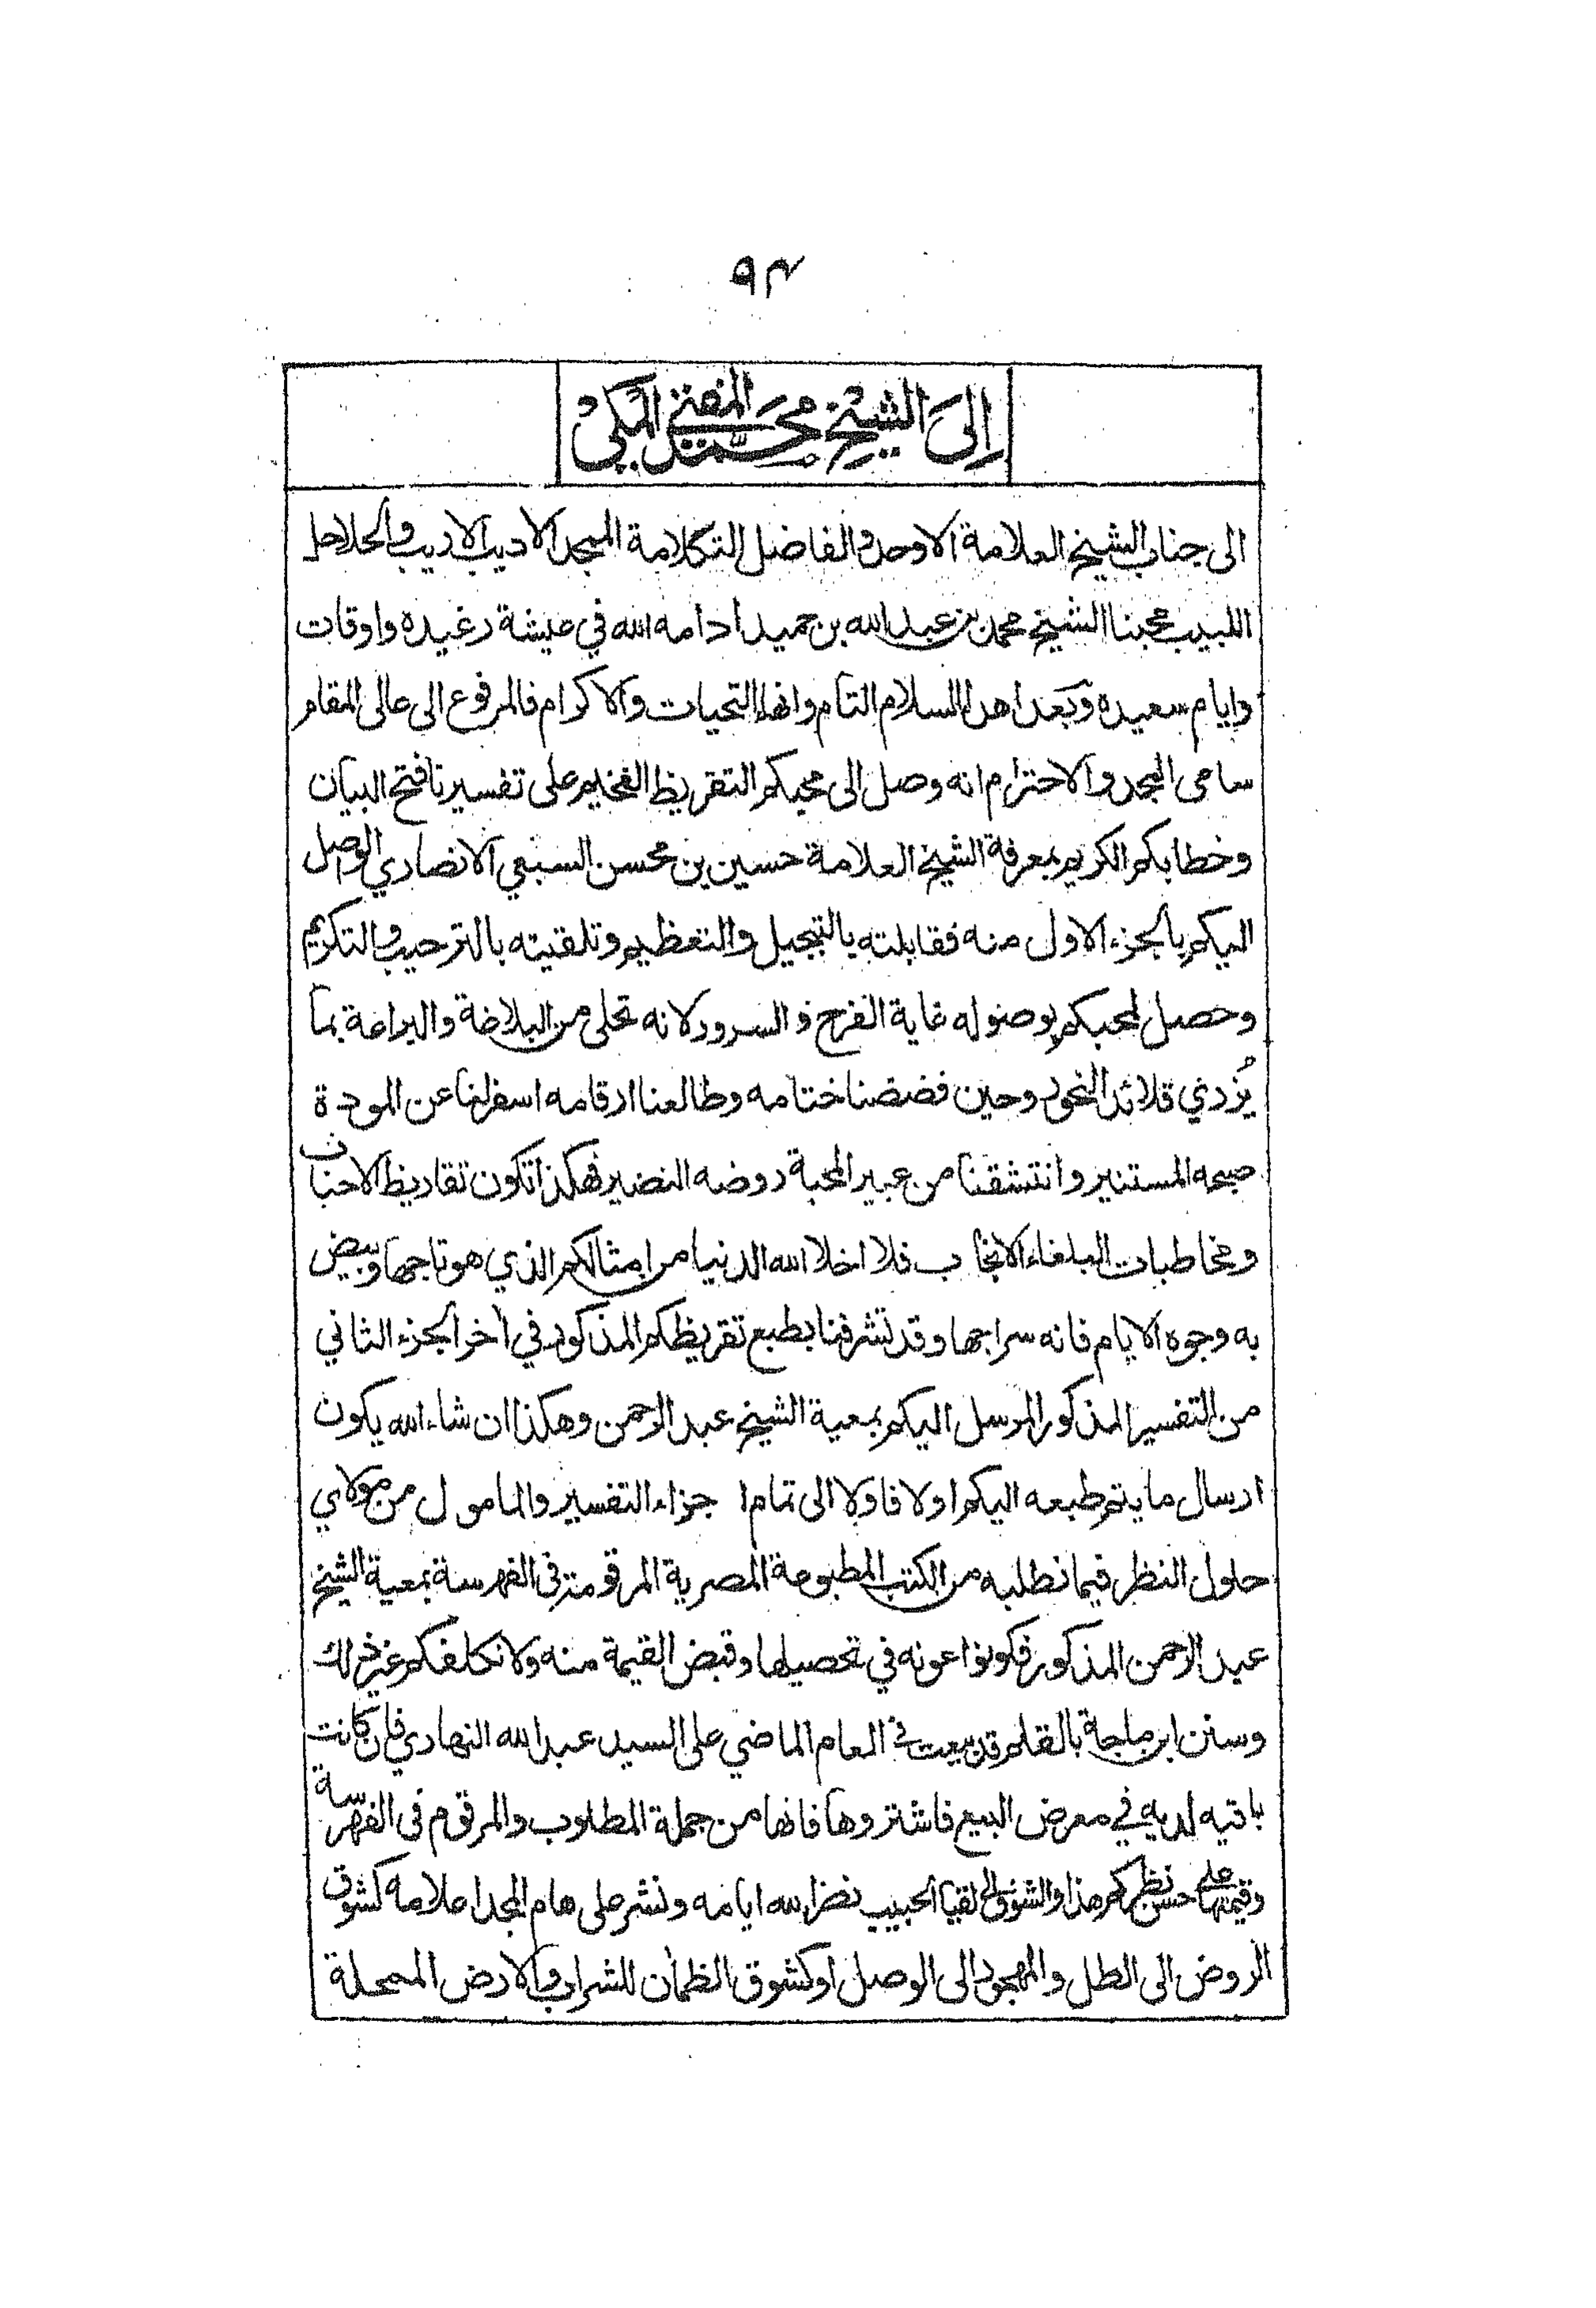 ٩٣
إلى الشيخ محمد المفتي المكي
الى جناب الشيخ العلامة الاوحد والفاضل التكلامة الامجد الاديب الاريب والحلاحل
اللبيب محبنا الشيخ محمد بن عبد الله بن حميد ادامه الله في عيشة رغيده واوقات
وايام سعيده وبعد اهداء السلام التام وانهاء التحيات والاكرام فالمرفوع الى عالى المقام
سامى المجد والاحترام انه وصل الى محبكم التقريظ الفخيم على تفسيرنا فتح البيان
وخطابكم الكريم بمعرفة الشيخ العلامة حسين بن محسن السبعي الانصاري الواصل
اليكم بالجزء الاول منه فقابلته بالتبجيل والتعظيم وتلقيته بالترحيب والتكريم
وحصل لمحبكم بوصوله غاية الفرح والسرور لانه تحلى من البلاغة والبراعة بما
يُزدي قلائد النحور وحين فضضنا ختامه وطالعنا ارقامه اسفر لنا عن المودة
صبحه المستنير وانتشقنا من عبير المحبة روضه النضير فهكذا تكون تقاريظ الاحباب
ومخاطبات البلغاء الانجاب فلا اخلا الله الدنيا من امثالكم الذي هو تاجها وبيض
به وجوه الايام فانه سراجها وقد تشرفنا بطبع تقريظكم المذكور في آخر الجزء الثاني
من التفسير المذكور المرسل اليكم بمعية الشيخ عبد الرحمن وهكذا ان شاء الله يكون
ارسال ما يتم طبعه اليكم اولا فاولا الى تمام اجزاء التفسير والمامول من مولاي
حلول النظر فيما نطلبه من الكتب المطبوعة المصرية المرقومة في الفهرسة بمعية الشيخ
عبد الرحمن المذكور فكونوا عونه في تحصيلها وقبض القيمة منه ولا نكلفكم غير ذلك
وسنن ابن ماجة بالقلم قد بيعت في العام الماضي على السيد عبد الله النهاري فان كانت
باقيه لديه في معرض البيع فاشتروها فانها من جملة المطلوب والمرقوم فى الفهرسة
وقيمتها على حسن نظركم هذا والشوق الى لقيا الحبيب نضر الله ايامه ونشر على هام المجد اعلامه كشوق
الروض الى الطل والمهجور الى الوصل او كشوق الظمآن للشراب والارض الممحلة